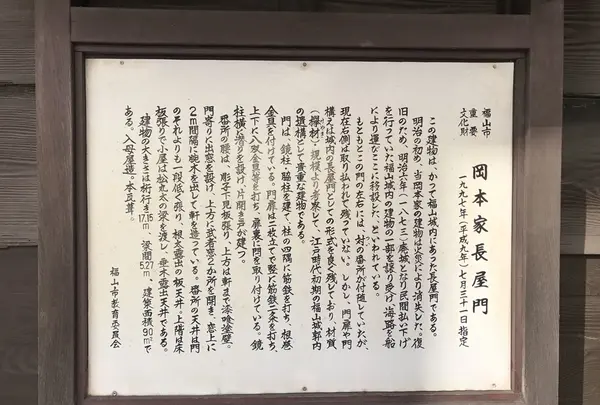 福山市
重要
文化財
岡本家長屋門
一九九七年(平成九年)七月三十一日指定
この建物は、かつて福山城内にあった長屋門である。
明治の初め、当岡本家の建物は火災により消失した。復
旧のため、明治六年(一八七三)廃城となり民間払い下げ
を行っていた福山城内の建物の一部を譲り受け、海路を船
により運びここに移設した、といわれている。
もともとこの門の左右には、一対の番所が付随していたが、
現在右側は取り払われて残っていない。しかし、門扉や門
構えは城内の長屋門としての形式を良く残しており、材質
(欅材)・規模より考察して、江戸時代初期の福山城郭内
の遺構として貴重な建物である。
門は、鏡柱・脇柱を建て、柱の四隅に筋鉄を打ち、根巻
金具を付けている。門扉は二枚立てで竪に筋鉄二条を打ち、
上下に八双金具等を打ち、扉裏に閂を取り付けている。鏡
柱横に潜りを設け、片開き戸が建つ。
番所の腰は、彫子下見板張り、上方は軒まで漆喰塗壁。
門寄りに出窓を設け、上方に武者窓二か所を開き、窓上に
2m間隔に腕木を出して軒を造っている。番所の天井は門
のそれよりも一段低く張り、根太露出の板天井。上階は床
板張りで小屋は松丸太の梁を渡し、垂木露出天井である。
建物の大きさは桁行き17.15m、梁間5.27m、建築面積90㎡で
ある。入母屋造。本瓦葺。
福山市教育委員会